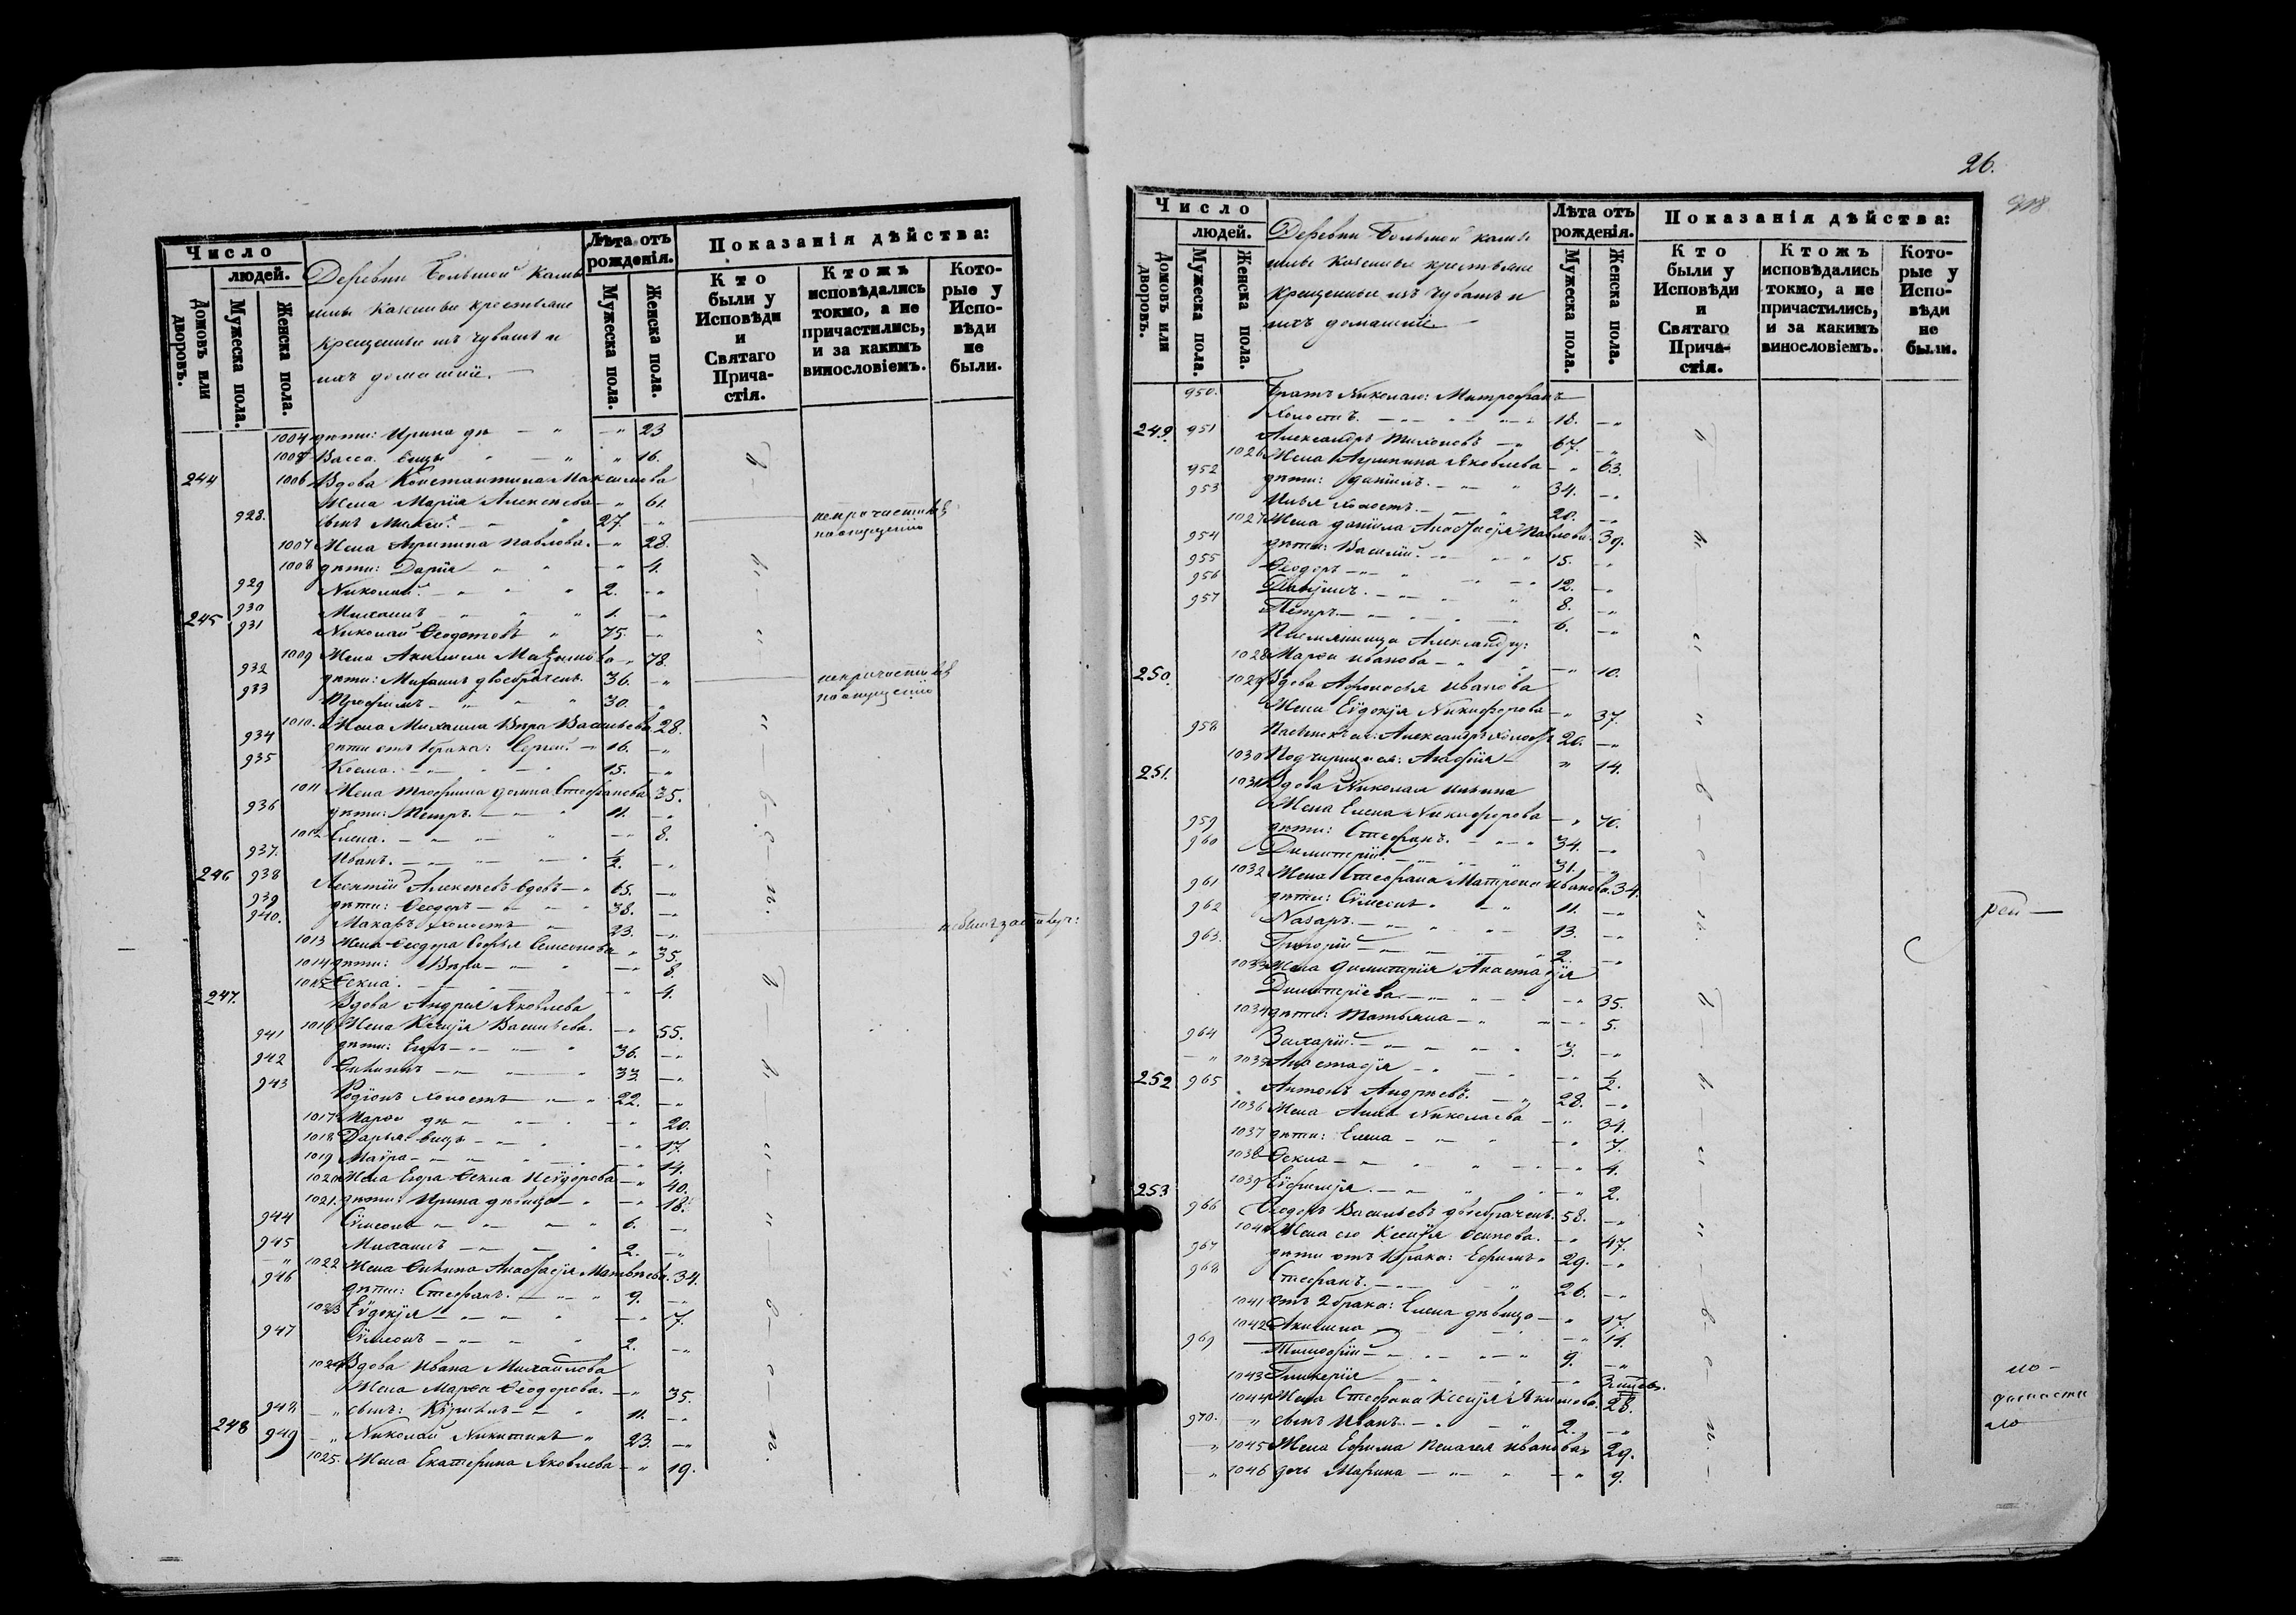 Число
людей.
Домовъ или дворовъ.
Мужеска пола.
Женска пола.
Деревни Большой Камы
казенные крестьяне
крещеные изъ чувашъ и
ихъ домашніе.
Лѣта отъ рожденія.
Мужеска пола.
Женска пола.
Показанія дѣйства:
Кто были у Исповѣди и Святаго Прича-стія.
Ктожъ исповѣдались токмо, а не причастились, и за какимъ винословіемъ.
Кото-рые у Испо-вѣди не были.
1004 дѣти: Ирина дѣ — " 23
1005 Васса — " 16.
244 1006 Вдова Константина Максимова
Жена Марія Алексѣева — " 61.
928. сынъ 27. — "
1007 Жена Агрипина Павлова. — " 28.
1008 дѣти: Дарія — " 4.
929 Николай 2. — "
930 Михаилъ 1. — "
245 931 Николай Ѳеодотовъ 75. — "
1009 Жена Акилина — " 78.
932 дѣти: Михаилъ двоебрачень 36. — "
933 Трофимъ 30. "
1010. Жена Михаила Вѣра Васильева 28.
934 дѣти отъ 1 брака: Сергій 16. — "
935 Косма. 15. — "
1011 Жена Трофима Домна Стефанова 35.
936 дѣти: Петръ. 11. — "
1012 Елена. — " 8.
937. Иванъ. ½. — "
246 938 Леонтій Алексѣевъ вдовъ — " 65. — "
939 дѣти: Ѳеодоръ — 38. — "
940. Макаръ холостъ 23. — "
1013 Жена Ѳеодора Софья Семенова " 35.
1014 дѣти: Вѣра — " 8.
1015 Ѳекла. — " 4.
247. Вдова Андрея Яковлева
1016 Жена Ксенія Васильева. — " 55.
941 дѣти: Егоръ — 36. — "
942 33. — "
943 Родіонъ холостъ — 22. — "
1017 Марѳа дѣ — " 20.
1018 Дарья — " 17.
1019 Маѵра — " 14.
1020 Жена Егора Ѳекла Исѵдорова — " 40.
1021. дѣти: Ирина дѣвица — " 18.
944 Сѵмеонъ 6. — "
945 Михаилъ 2. — "
1022 Жена Анастасія Матвѣева. 34.
946 дѣти: Стефанъ. 9. — "
1023 Еѵдокія — " 7.
947 Сѵмеонъ 2. — "
1024 Вдова Ивана Михайлова
Жена Марѳа Ѳеодорова. — " 35.
948 сынъ: 11. — "
248 949 Николай Никитинъ 23. — "
1025. Жена Екатерина Яковлева — " 19.
26.
Число
людей.
Домовъ или дворовъ.
Мужеска пола.
Женска пола.
Деревни Большой Камы
казенные крестьяне
крещеные изъ чувашъ и
ихъ домашніе
Лѣта отъ рожденія.
Мужеска пола.
Женска пола.
Показанія дѣйства:
Кто были у Исповѣди и Святаго Прича-стія.
Ктожъ исповѣдались токмо, а не причастились, и за какимъ винословіемъ.
Кото-рые у Испо-вѣди не были.
950. Братъ Николая: Митрофанъ
холостъ. 18. — "
249. 951 Александръ Тихоновъ — " 67. — "
1026 Жена Агрипина Яковлева — " 63.
952 дѣти: Даніилъ. 34. — "
953 Илья холостъ. 20. — "
1027 Жена Даніила Анастасія Павлова. 39.
954 дѣти: Василій. 15. — "
955 Ѳеодоръ 12. — "
956 8. — "
957 Петръ. 6. — "
Племянница Александру:
1028 Марѳа Иванова — " 10.
250. 1029 Вдова Иванова
Жена Еѵдокія Никифорова — " 37.
958 Пасынокъ ея: Александръ холостъ 20. — "
1030 Падчерица ея: " 14.
251. 1031 Вдова Николая Ильина
Жена Елена Никифорова — " 70.
959 дѣти: Стефанъ. 34. — "
960 Димитрій. 31. — "
1032 Жена Стефана Матрона Иванова. 34.
961 дѣти: Сѵмеонъ 11. — "
962 Назаръ. 13. — "
963. Григорій 2. — "
1033 Жена Димитрія Анастасія
Димитріева. — " 35.
1034 дѣти: Татьяна — " 5.
964 Захарій. 3. — "
1035 Анастасія — " ½.
252 965 Антонъ Андреевъ. 28. — "
1036 Жена Анна Николаева — " 34.
1037 дѣти: Елена — " 7.
1038 Ѳекла — " 4.
1039 Еѵфимія. — " 2.
253 966 Ѳеодоръ Васильевъ двоебрачень. 58. — "
1040 Жена его Ксенія Осипова. — " 47.
967 дѣти отъ 1 брака: Ефимъ 29. — "
968 Стефанъ. 26. — "
1041 отъ 2 брака: Елена дѣвица — " 17.
1042 Акилина — " 14.
969 Тимофій 9. — "
1043 Гликерія
1044 Жена Стефана Ксенія Якимова. 28.
970. сынъ Иванъ. 2. — "
1045 Жена Ефима Пелагея Иванова 29.
1046 дочь Марина — " 9.